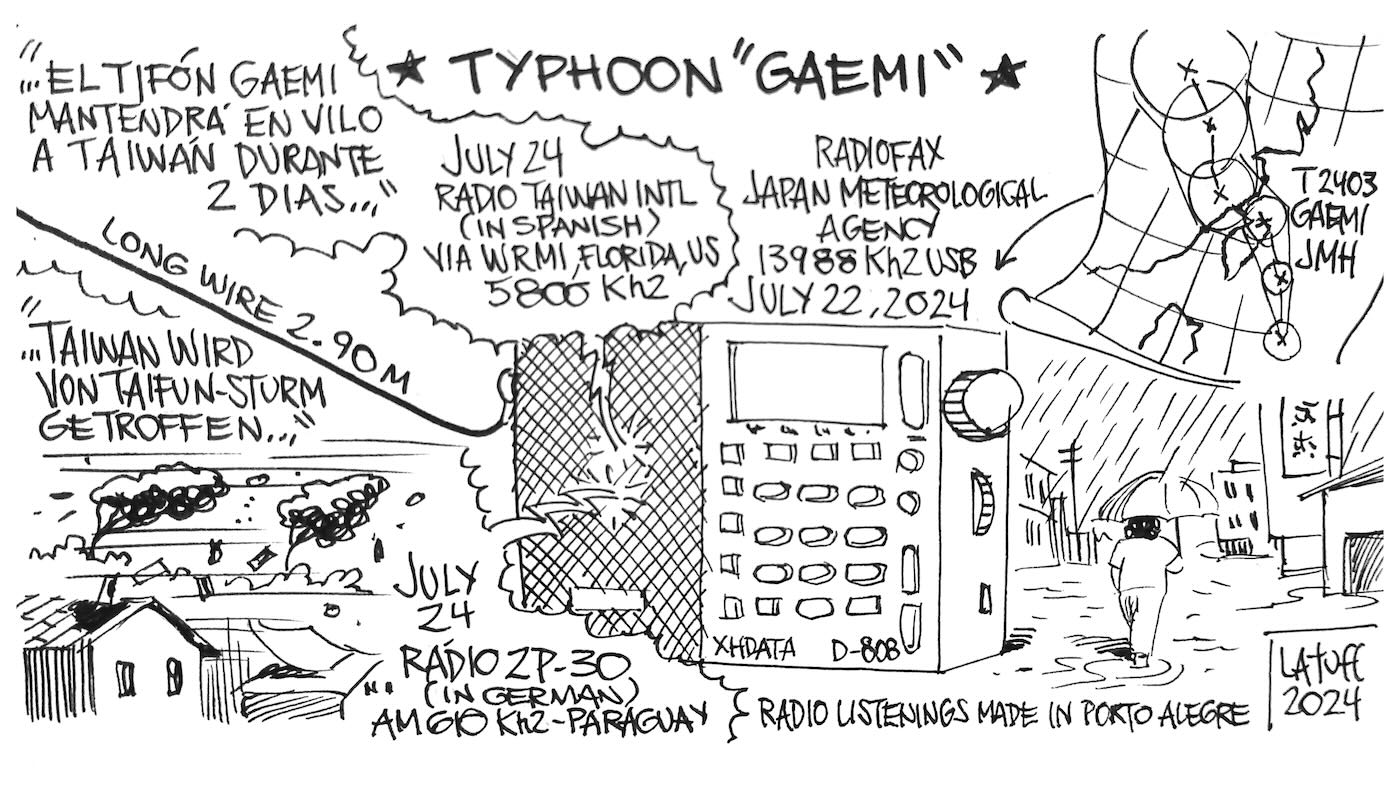 ★ TYPHOON "GAEMI" ★
"...EL TIFÓN GAEMI
MANTENDRÁ EN VILO
A TAIWÁN DURANTE
2 DIAS..."
JULY 24
RADIO TAIWAN INTL
(IN SPANISH)
VIA WRMI, FLORIDA, US
5800 KhZ
RADIOFAX
JAPAN METEOROLOGICAL
AGENCY
13988 KhZ USB
JULY 22, 2024
T2403
GAEMI
JMH
LONG WIRE 2.90 M
"...TAIWAN WIRD
VON TAIFUN-STURM
GETROFFEN..."
JULY
24
RÁDIO ZP-30
(IN GERMAN)
AM 610 KhZ - PARAGUAY
XHDATA D-808
RADIO LISTENINGS MADE IN PORTO ALEGRE
LATUFF
2024